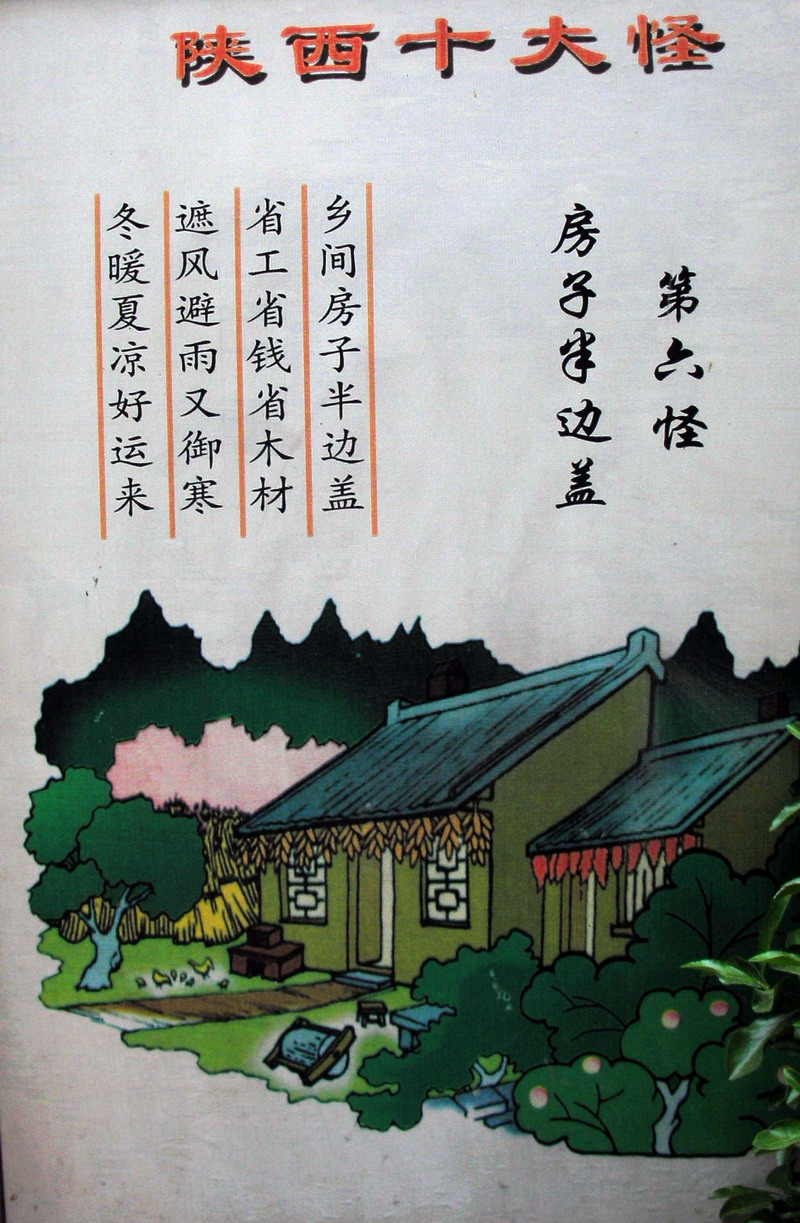 陕西十大怪
第六怪
房子半边盖
乡间房子半边盖
省工省钱省木材
遮风避雨又御寒
冬暖夏凉好运来